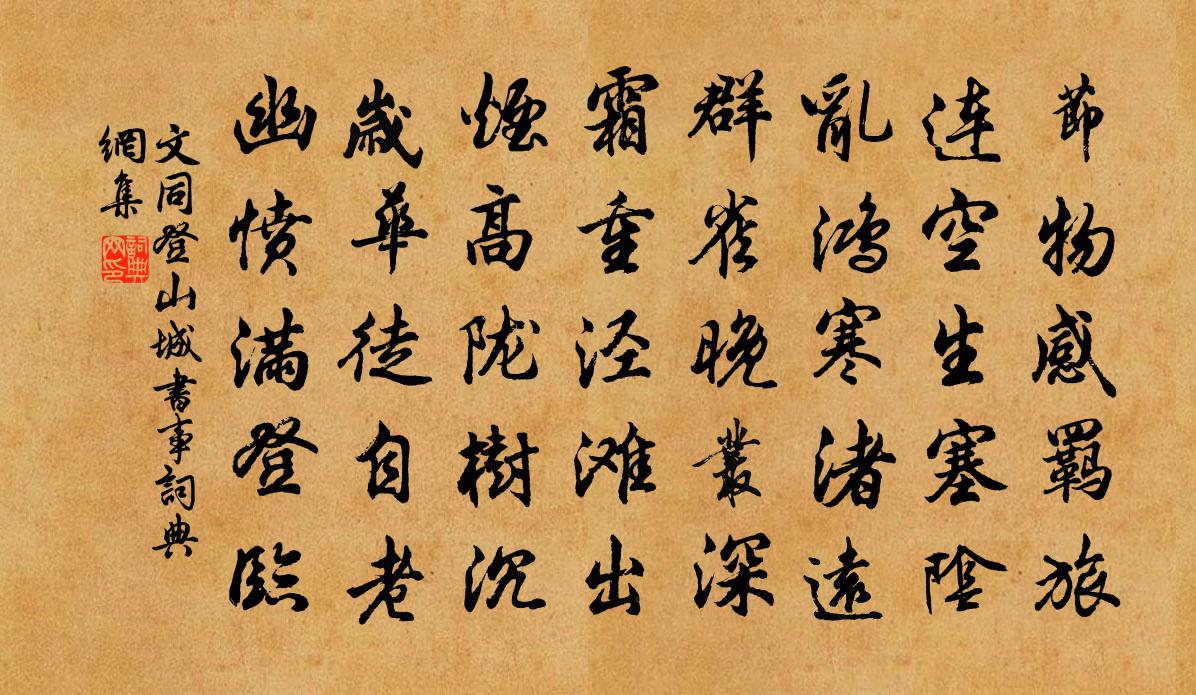 節物感羈旅
連空生塞陰
亂鴻寒渚遠
群雀晚叢深
霜重泾滩出
煙高陇樹沉
歲華徒自老
幽憤满登臨
文同登山城書事詞典
網集
詞典網印